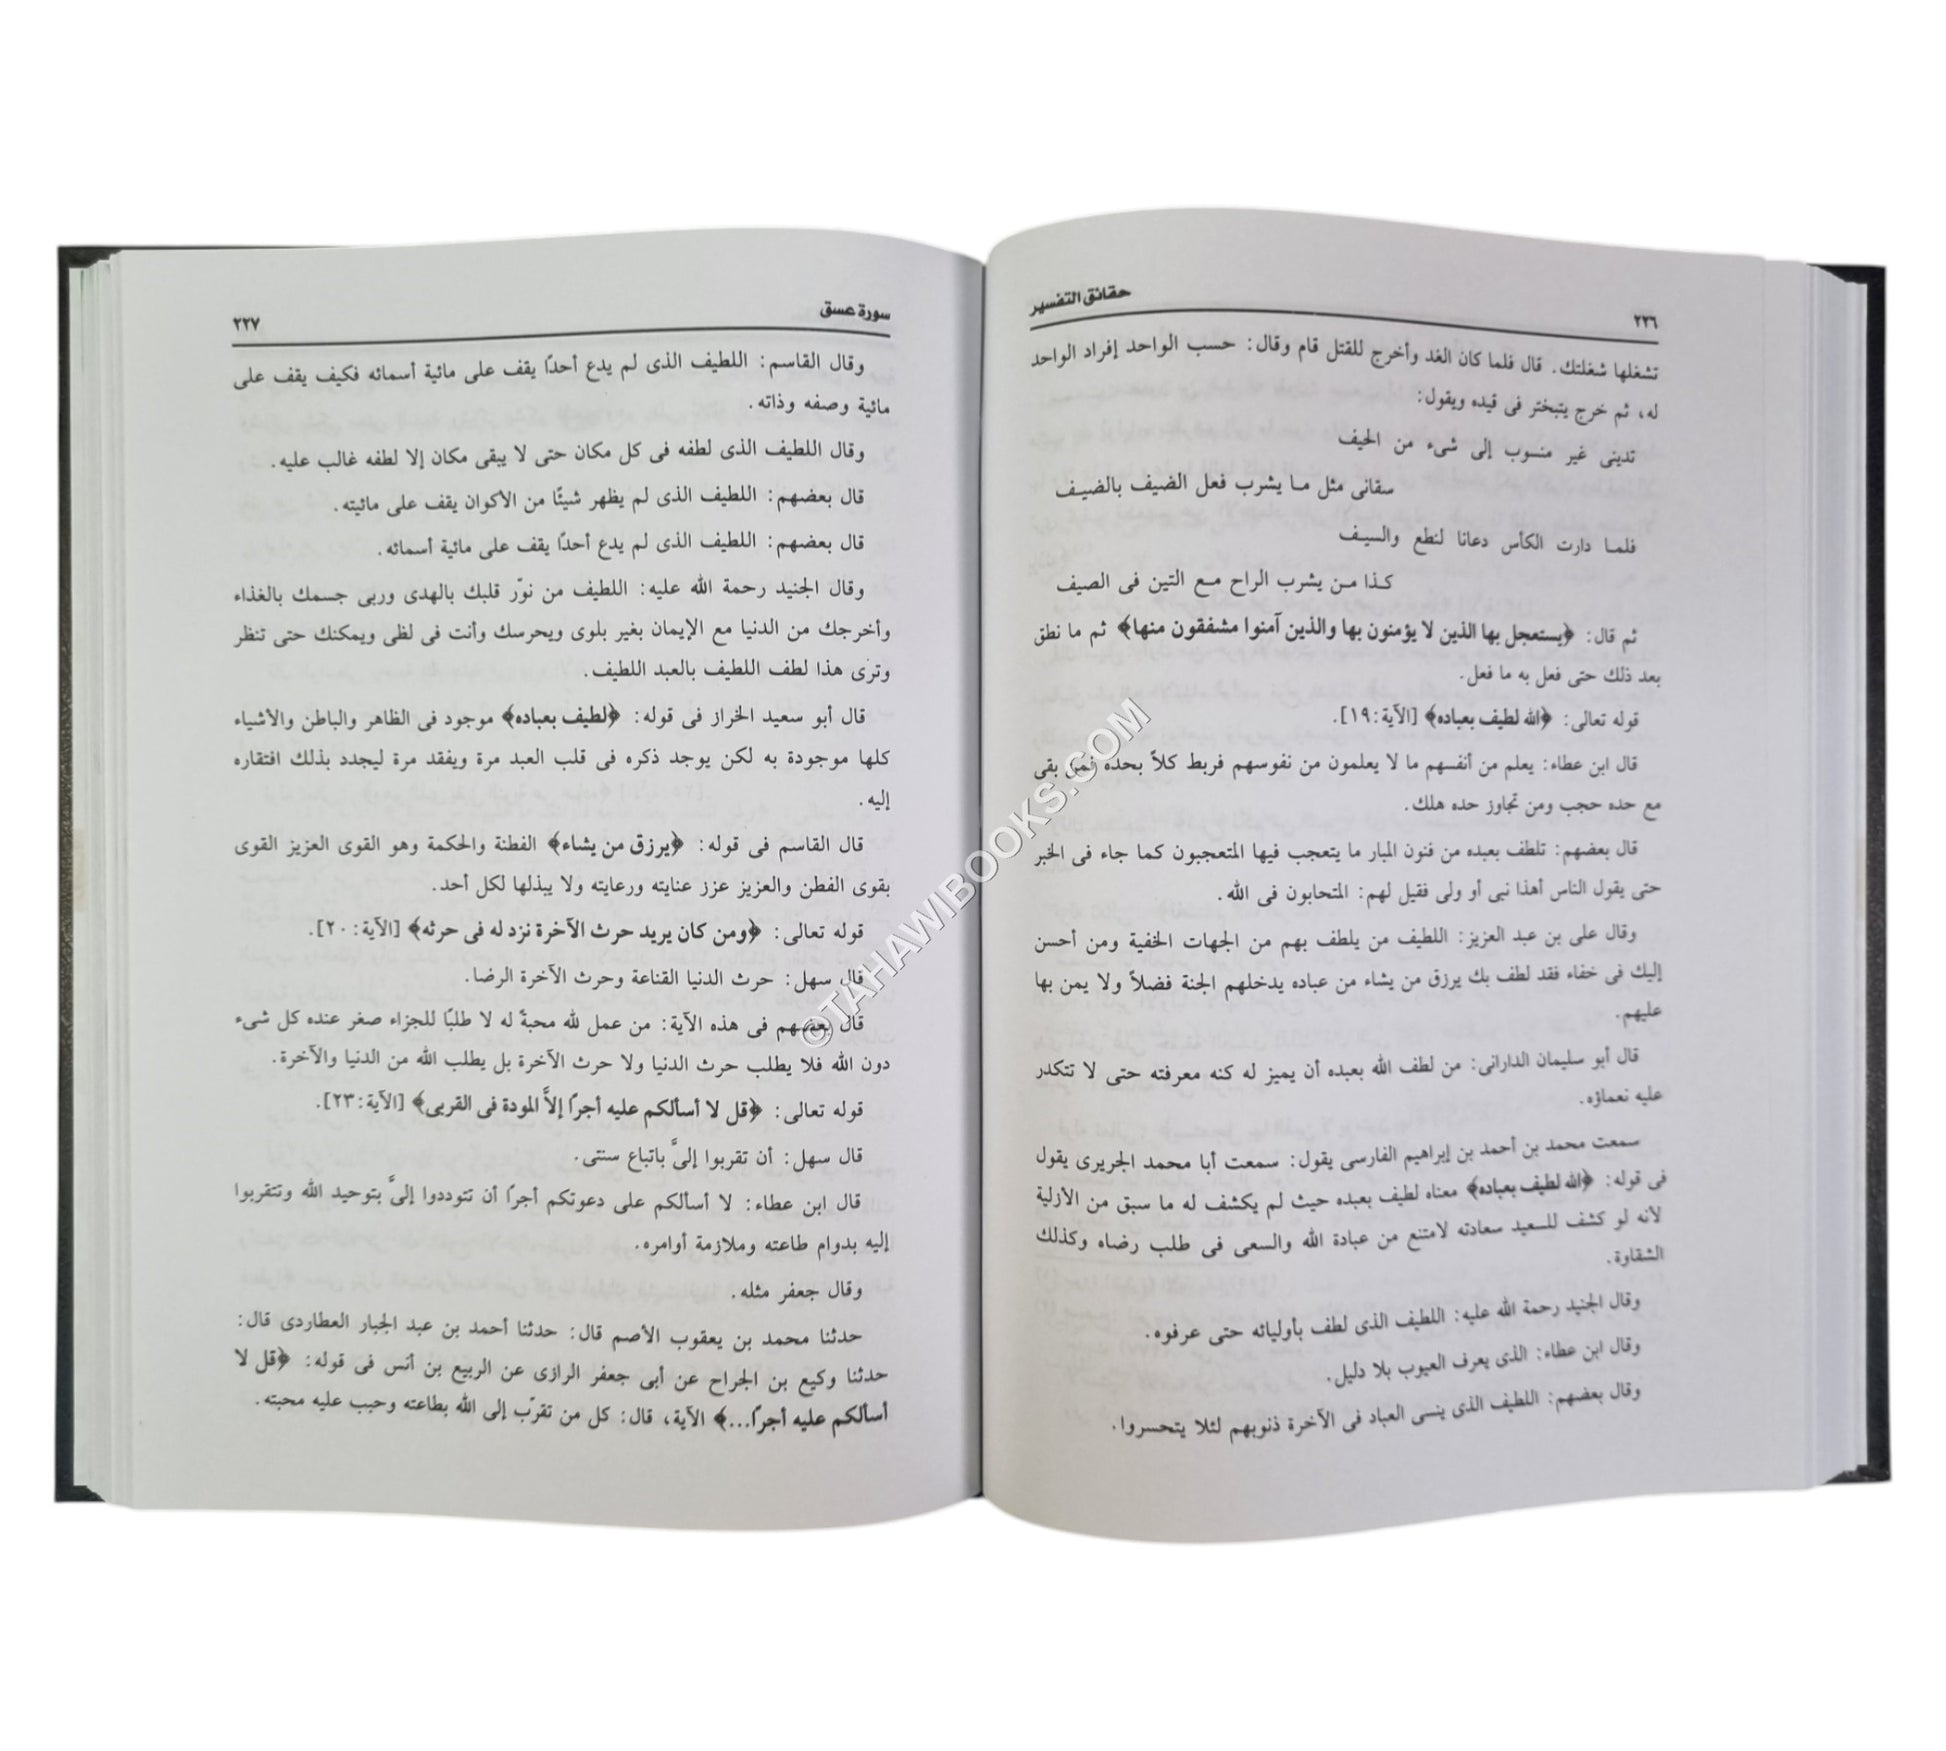 ٢٢٦
حقائق التفسير
تشغلها شغلتك. قال فلما كان الغد وأخرج للقتل قام وقال: حسب الواحد إفراد الواحد
له، ثم خرج يتبختر فى قيده ويقول:
تدينى غير منسوب إلى شىء من الحيف
سقانى مثل ما يشرب فعل الضيف بالضيف
فلما دارت الكأس دعانا لنطع والسيف
كذا من يشرب الراح مع التين فى الصيف
ثم قال: ﴿يستعجل بها الذين لا يؤمنون بها والذين آمنوا مشفقون منها﴾ ثم ما نطق
بعد ذلك حتى فعل به ما فعل.
قوله تعالى: ﴿الله لطيف بعباده﴾ [الآية: ١٩].
قال ابن عطاء: يعلم من أنفسهم ما لا يعلمون من نفوسهم فربط كلاً بحده فمن بقى
مع حده حجب ومن تجاوز حده هلك.
قال بعضهم: تلطف بعبده من فنون المبار ما يتعجب فيها المتعجبون كما جاء فى الخبر
حتى يقول الناس أهذا نبى أو ولى فقيل لهم: المتحابون فى الله.
وقال على بن عبد العزيز: اللطيف من يلطف بهم من الجهات الخفية ومن أحسن
إليك فى خفاء فقد لطف بك يرزق من يشاء من عباده يدخلهم الجنة فضلاً ولا يمن بها
عليهم.
قال أبو سليمان الدارانى: من لطف الله بعبده أن يميز له كنه معرفته حتى لا تتكدر
عليه نعماؤه.
سمعت محمد بن أحمد بن إبراهيم الفارسى يقول: سمعت أبا محمد الجريرى يقول
فى قوله: ﴿الله لطيف بعباده﴾ معناه لطيف بعبده حيث لم يكشف له ما سبق من الأزلية
لأنه لو كشف للسعيد سعادته لامتنع من عبادة الله والسعى فى طلب رضاه وكذلك
الشقاوة.
وقال الجنيد رحمة الله عليه: اللطيف الذى لطف بأوليائه حتى عرفوه.
وقال ابن عطاء: الذى يعرف العيوب بلا دليل.
وقال بعضهم: اللطيف الذى ينسى العباد فى الآخرة ذنوبهم لئلا يتحسروا.
سورة عسق
٢٢٧
وقال القاسم: اللطيف الذى لم يدع أحدًا يقف على مائية أسمائه فكيف يقف على
مائية وصفه وذاته.
وقال اللطيف الذى لطفه فى كل مكان حتى لا يبقى مكان إلا لطفه غالب عليه.
قال بعضهم: اللطيف الذى لم يظهر شيئًا من الأكوان يقف على مائيته.
قال بعضهم: اللطيف الذى لم يدع أحدًا يقف على مائية أسمائه.
وقال الجنيد رحمة الله عليه: اللطيف من نوّر قلبك بالهدى وربى جسمك بالغذاء
وأخرجك من الدنيا مع الإيمان بغير بلوى ويحرسك وأنت فى لظى ويمكنك حتى تنظر
وترى هذا لطف اللطيف بالعبد اللطيف.
قال أبو سعيد الخراز فى قوله: ﴿لطيف بعباده﴾ موجود فى الظاهر والباطن والأشياء
كلها موجودة به لكن يوجد ذكره فى قلب العبد مرة ويفقد مرة ليجدد بذلك افتقاره
إليه.
قال القاسم فى قوله: ﴿يرزق من يشاء﴾ الفطنة والحكمة وهو القوى العزيز القوى
بقوى الفطن والعزيز عزز عنايته ورعايته ولا يبذلها لكل أحد.
قوله تعالى: ﴿ومن كان يريد حرث الآخرة نزد له فى حرثه﴾ [الآية: ٢٠].
قال سهل: حرث الدنيا القناعة وحرث الآخرة الرضا.
قال بعضهم فى هذه الآية: من عمل لله محبةً له لا طلبًا للجزاء صغر عنده كل شىء
دون الله فلا يطلب حرث الدنيا ولا حرث الآخرة بل يطلب الله من الدنيا والآخرة.
قوله تعالى: ﴿قل لا أسألكم عليه أجرًا إلاَّ المودة فى القربى﴾ [الآية: ٢٣].
قال سهل: أن تقربوا إلىَّ باتباع سنتى.
قال ابن عطاء: لا أسألكم على دعوتكم أجرًا أن تتوددوا إلىَّ بتوحيد الله وتتقربوا
إليه بدوام طاعته وملازمة أوامره.
وقال جعفر مثله.
حدثنا محمد بن يعقوب الأصم قال: حدثنا أحمد بن عبد الجبار العطاردى قال:
حدثنا وكيع بن الجراح عن أبى جعفر الرازى عن الربيع بن أنس فى قوله: ﴿قل لا
أسألكم عليه أجرًا...﴾ الآية، قال: كل من تقرّب إلى الله بطاعته وحبب عليه محبته.
©TAHAWIBOOKS.COM